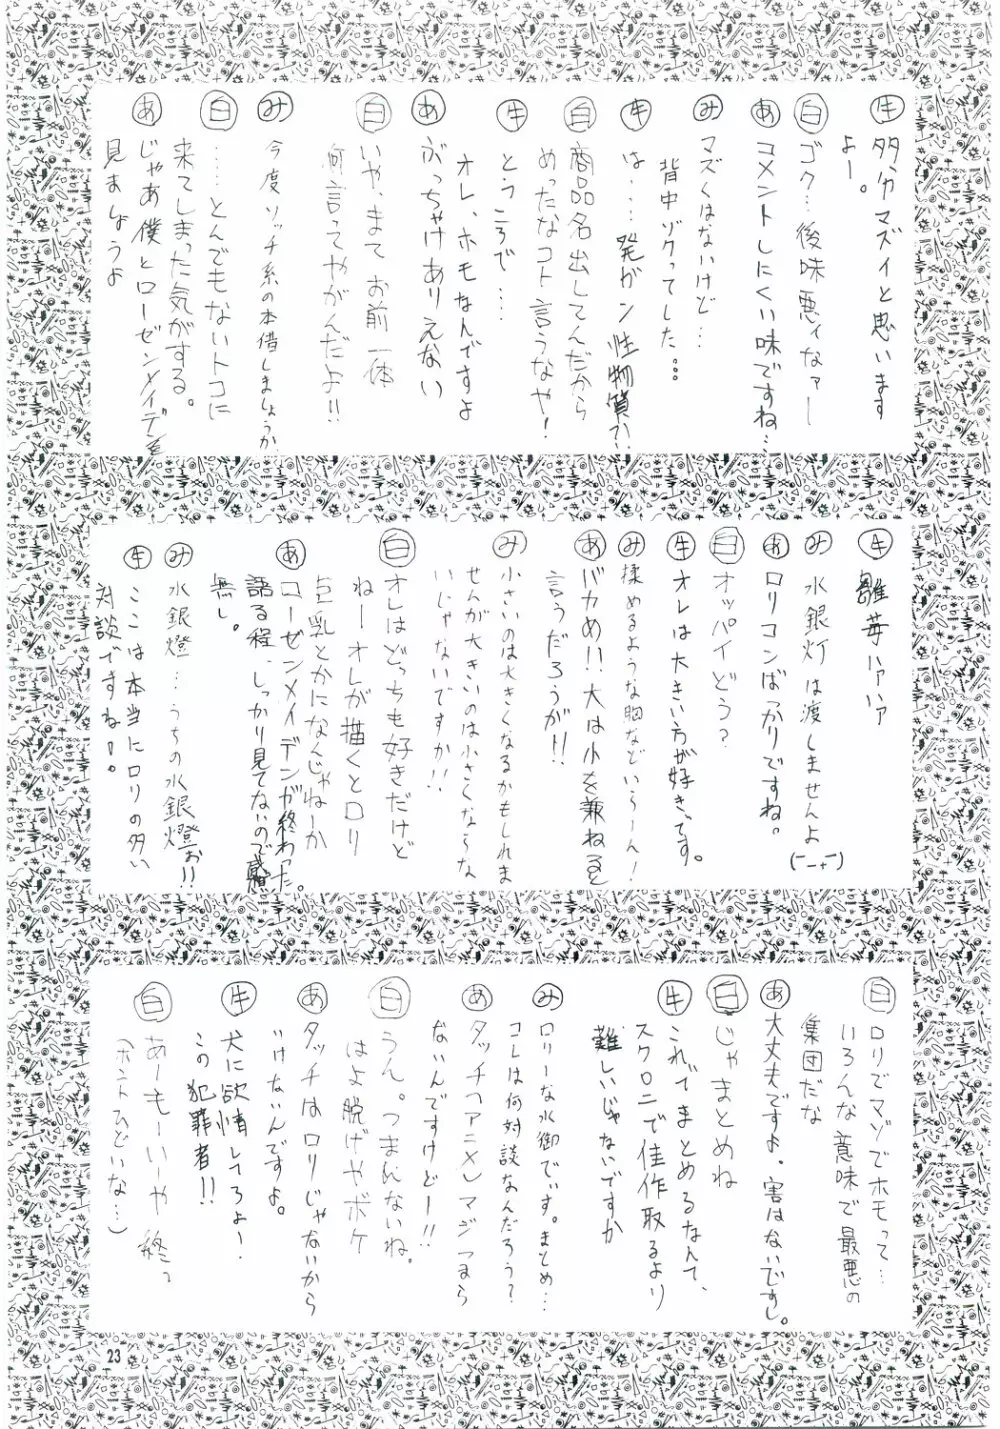 牛 多分マズイと思います
よー。
白 ゴク…後味悪ィなァー
あ コメントしにくい味ですね…
み マズくはないけど…
背中ゾクってした…
牛 は…発ガン性物質か!
白 商品名出してんだから
めったなコト言うなや!
牛 ところで…
オレ、ホモなんですよ
あ ぶっちゃけありえない
白 いや、まて お前一体
何言ってやがんだよ!!
み 今度ソッチ系の本借しましょうか
白 ……とんでもないトコに
来てしまった気がする。
あ じゃあ僕とローゼンメイデンを
見ましょうよ
牛 雛苺ハァハァ
み 水銀灯は渡しませんよ
あ ロリコンばっかりですね。
白 オッパイどう?
牛 オレは大きい方が好きです。
み 揉めるような胸などいらーん!
あ バカめ!!大は小を兼ねると
言うだろうが!!
み 小さいのは大きくなるかもしれま
せんが大きいのは小さくならな
いじゃないですか!!
白 オレはどっちも好きだけど
ねーオレが描くとロリ
巨乳とかになんじゃねーか
あ ローゼンメイデンが終わった。
語る程、しっかり見てないので感想
無し。
み 水銀燈…うちの水銀燈ぉ!!
牛 ここは本当にロリの多い
対談ですね!。
白 ロリでマゾでホモって…
いろんな意味で最悪の
集団だな
あ 大丈夫ですよ。害はないですし。
白 じゃまとめね
牛 これでまとめるなんて、
スクロニで佳作取るより
難しいじゃないですか
み ロリーな水御でいす。まとめ…
コレは何対談なんだろう?
あ タッチ(アニメ)マジつまら
ないんですけどー!!
白 うん。つまんないね。
はよ脱げやボケ
あ タッチはロリじゃないから
いけないんですよ。
牛 犬に欲情してろよー!
この犯罪者!!
白 あーもーいーや 終っ
(ホントひどいな…)
23